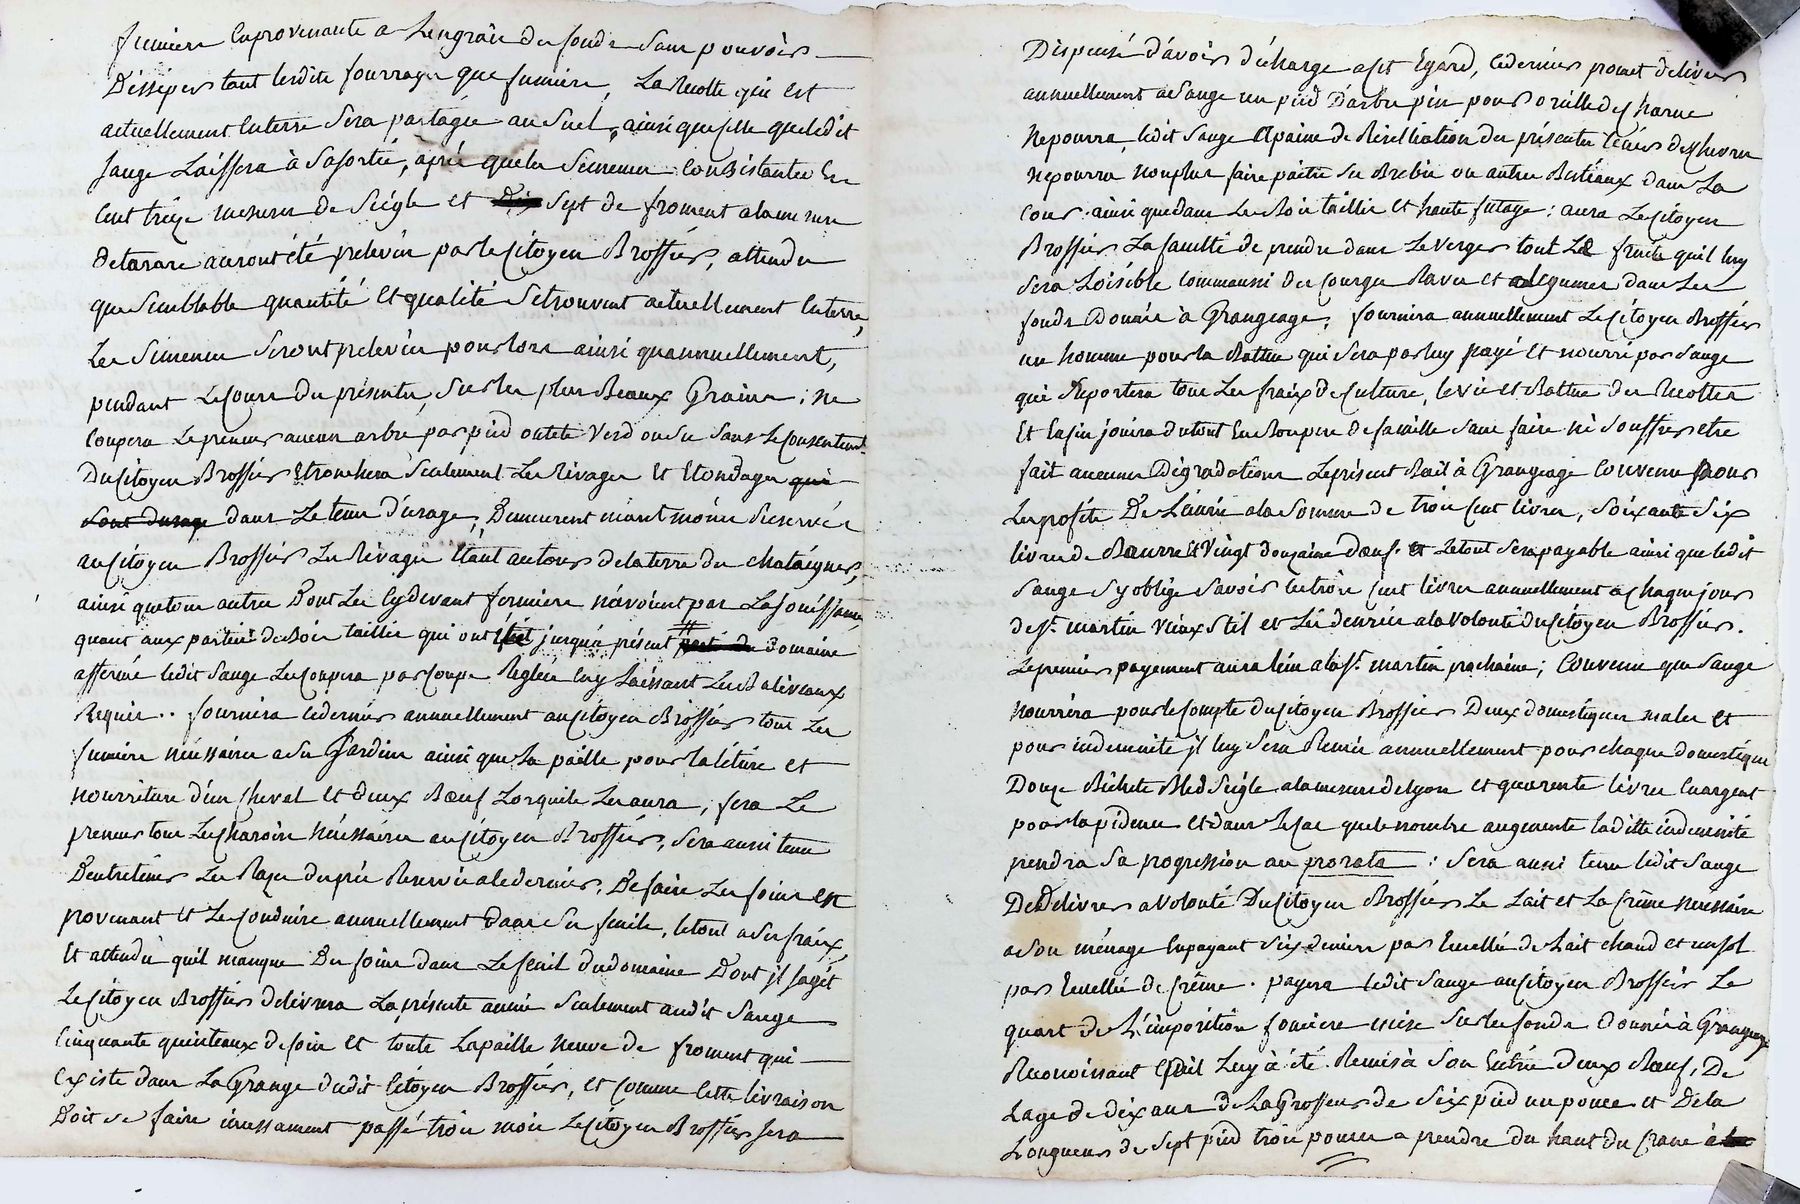 fumiers en provenants a L'engrais du fonds sans pouvoir
Dissiper tant lesdits fourrages que fumiers, La Recolte qui est
actuellement en terre Sera partagée au Suel, ainsi que celle que ledit
Sauge Laissera à Sa sortie, après que les Semences Consistantes En
Cent treize mesures de Seigle et Sept de froment a la mesure
de tarare auront été prelevées par le Citoyen Brossier, attendu
que Semblable quantité Et qualité Se trouvent actuellement En terre,
Les Semences Seront prelevées pour lors ainsi qu'annuellement,
pendant Le Cours du présentes, Sur les plus Beaux Grains; Ne
Coupera Le preneur aucun arbre par pied ou tete Verd ou Sec Sans Le Consentement
Du Citoyen Brossier Etronchera Seulement Les Rivages Et Etondages qui
Sont dusage dans Le tems d'usage, Demeurent néantmoins Reservés
au Citoyen Brossier Les Rivages Etant autour de la terre du chataigner,
ainsi que tous autres Dont Les Cy devant fermiers n'avoient pas La Jouissance,
quant aux parties de Bois taillis qui ont été jusqu'à présent du Domaine
affermé ledit Sauge Les Coupera par Coupe Reglée En y Laissant Les Baliveaux
Requis.. fournira ce dernier annuellement au Citoyen Brossier tous Les
fumiers nécessaires a Son Jardin ainsi que La paille pour la létière et
nourriture d'un Cheval Et deux Bœufs Lorsqu'il Les aura, fera Le
preneur tous Les Charois Nécessaires au Citoyen Brossier, Sera aussi tenu
D'entretenir Les Rases du pré Reservé a ce dernier, De faire Les foins En
provenant Et Les Conduire annuellement dans Son fenil, le tout a Ses fraix,
Et attendu qu'il manque Du foin dans Le fenil du domaine Dont il Sagit
Le Citoyen Brossier delivrera La présente année Seulement audit Sauge
Cinquante quinteaux de foin Et toute La paille Neuve de froment qui
Existe dans La Grange dudit Citoyen Brossier, Et Comme Cette livraison
Doit Se faire incessament passé trois mois Le Citoyen Brossier Sera
Dispensé d'avoir d'écharge a cet Egard, Ce dernier promet delivrer
annuellement a Sauge un pied D'arbre pin pour oreille de Charue
Ne pourra ledit Sauge a paine de Résiliation du présentes tenir des Chevres
Ne pourra non plus faire paitre Ses Brebis ou autres Bestiaux dans La
Cour ainsi que dans Le Bois taillis Et haute futaye; aura Le Citoyen
Brossier La faculté de prendre dans Le Verger tout Le fruits qu'il luy
Sera Loisible Comme aussi des Courges Raves Et Legumes dans Les
fonds Donnés à Grangeage; fournira annuellement Le Citoyen Brossier
un homme pour la Battue qui Sera par luy payé Et nourri par Sauge
qui Suportera tous Les fraix de Culture, levée et Battue des Recoltes
Et Enfin jouira du tout En Bon pere de famille Sans faire ni Souffrir etre
fait aucunes Dégradations Le présent Bail à Grangeage Convenu pour
Les profits De L'écurie a la Somme de trois Cent livres, Soixante Six
livres de Beurre Et Vingt douzaines d'œufs. Le tout Sera payable ainsi que ledit
Sauge S'y oblige Savoir les trois Cent livres annuellement a Chaque jour
de St. martin Vieux Stil et Les denrées a la volonté du Citoyen Brossier.
Le premier payement aura lieu a la St. martin prochaine; Convenu que Sauge
Nourrira pour le Compte du Citoyen Brossier Deux domestiques males et
pour indemnité il luy Sera Remis annuellement pour chaque domestique
Douze Bichets Bled Seigle a la mesure de lyon et quarente livres En argent
pour la pidence Et dans Le Cas que le nombre augmente la ditte indemnité
prendra Sa progression au prorata; Sera aussi tenu ledit Sauge
De Delivrer a Volonté Du Citoyen Brossier Le Lait et La Crême Nécessaire
a Son ménage En payant Six deniers par Ecuellée de Lait chaud et un Sol
par Ecuellée de Crême. payera ledit Sauge au Citoyen Brossier Le
quart de L'imposition fonciere mise Sur les fonds Donnés à Grangeage
Reconoissant qu'il Luy à été Remis à Son Entrée deux Bœufs, De
Lage de dix ans de La Grosseur de Six pied un pouce et De la
Longueur de Sept pied trois pouces a prendre du haut du Crane à